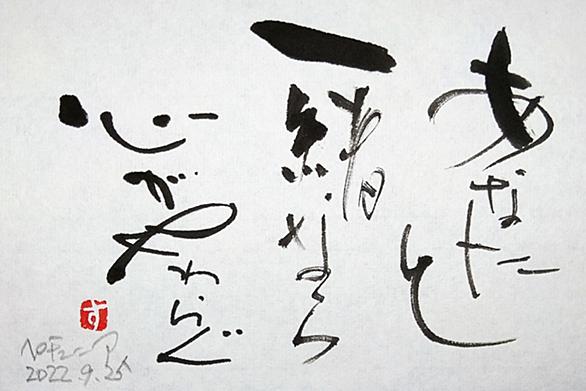 あなたと
一緒なら
心がやわらぐ
す
ペチュニア
2022.9.25